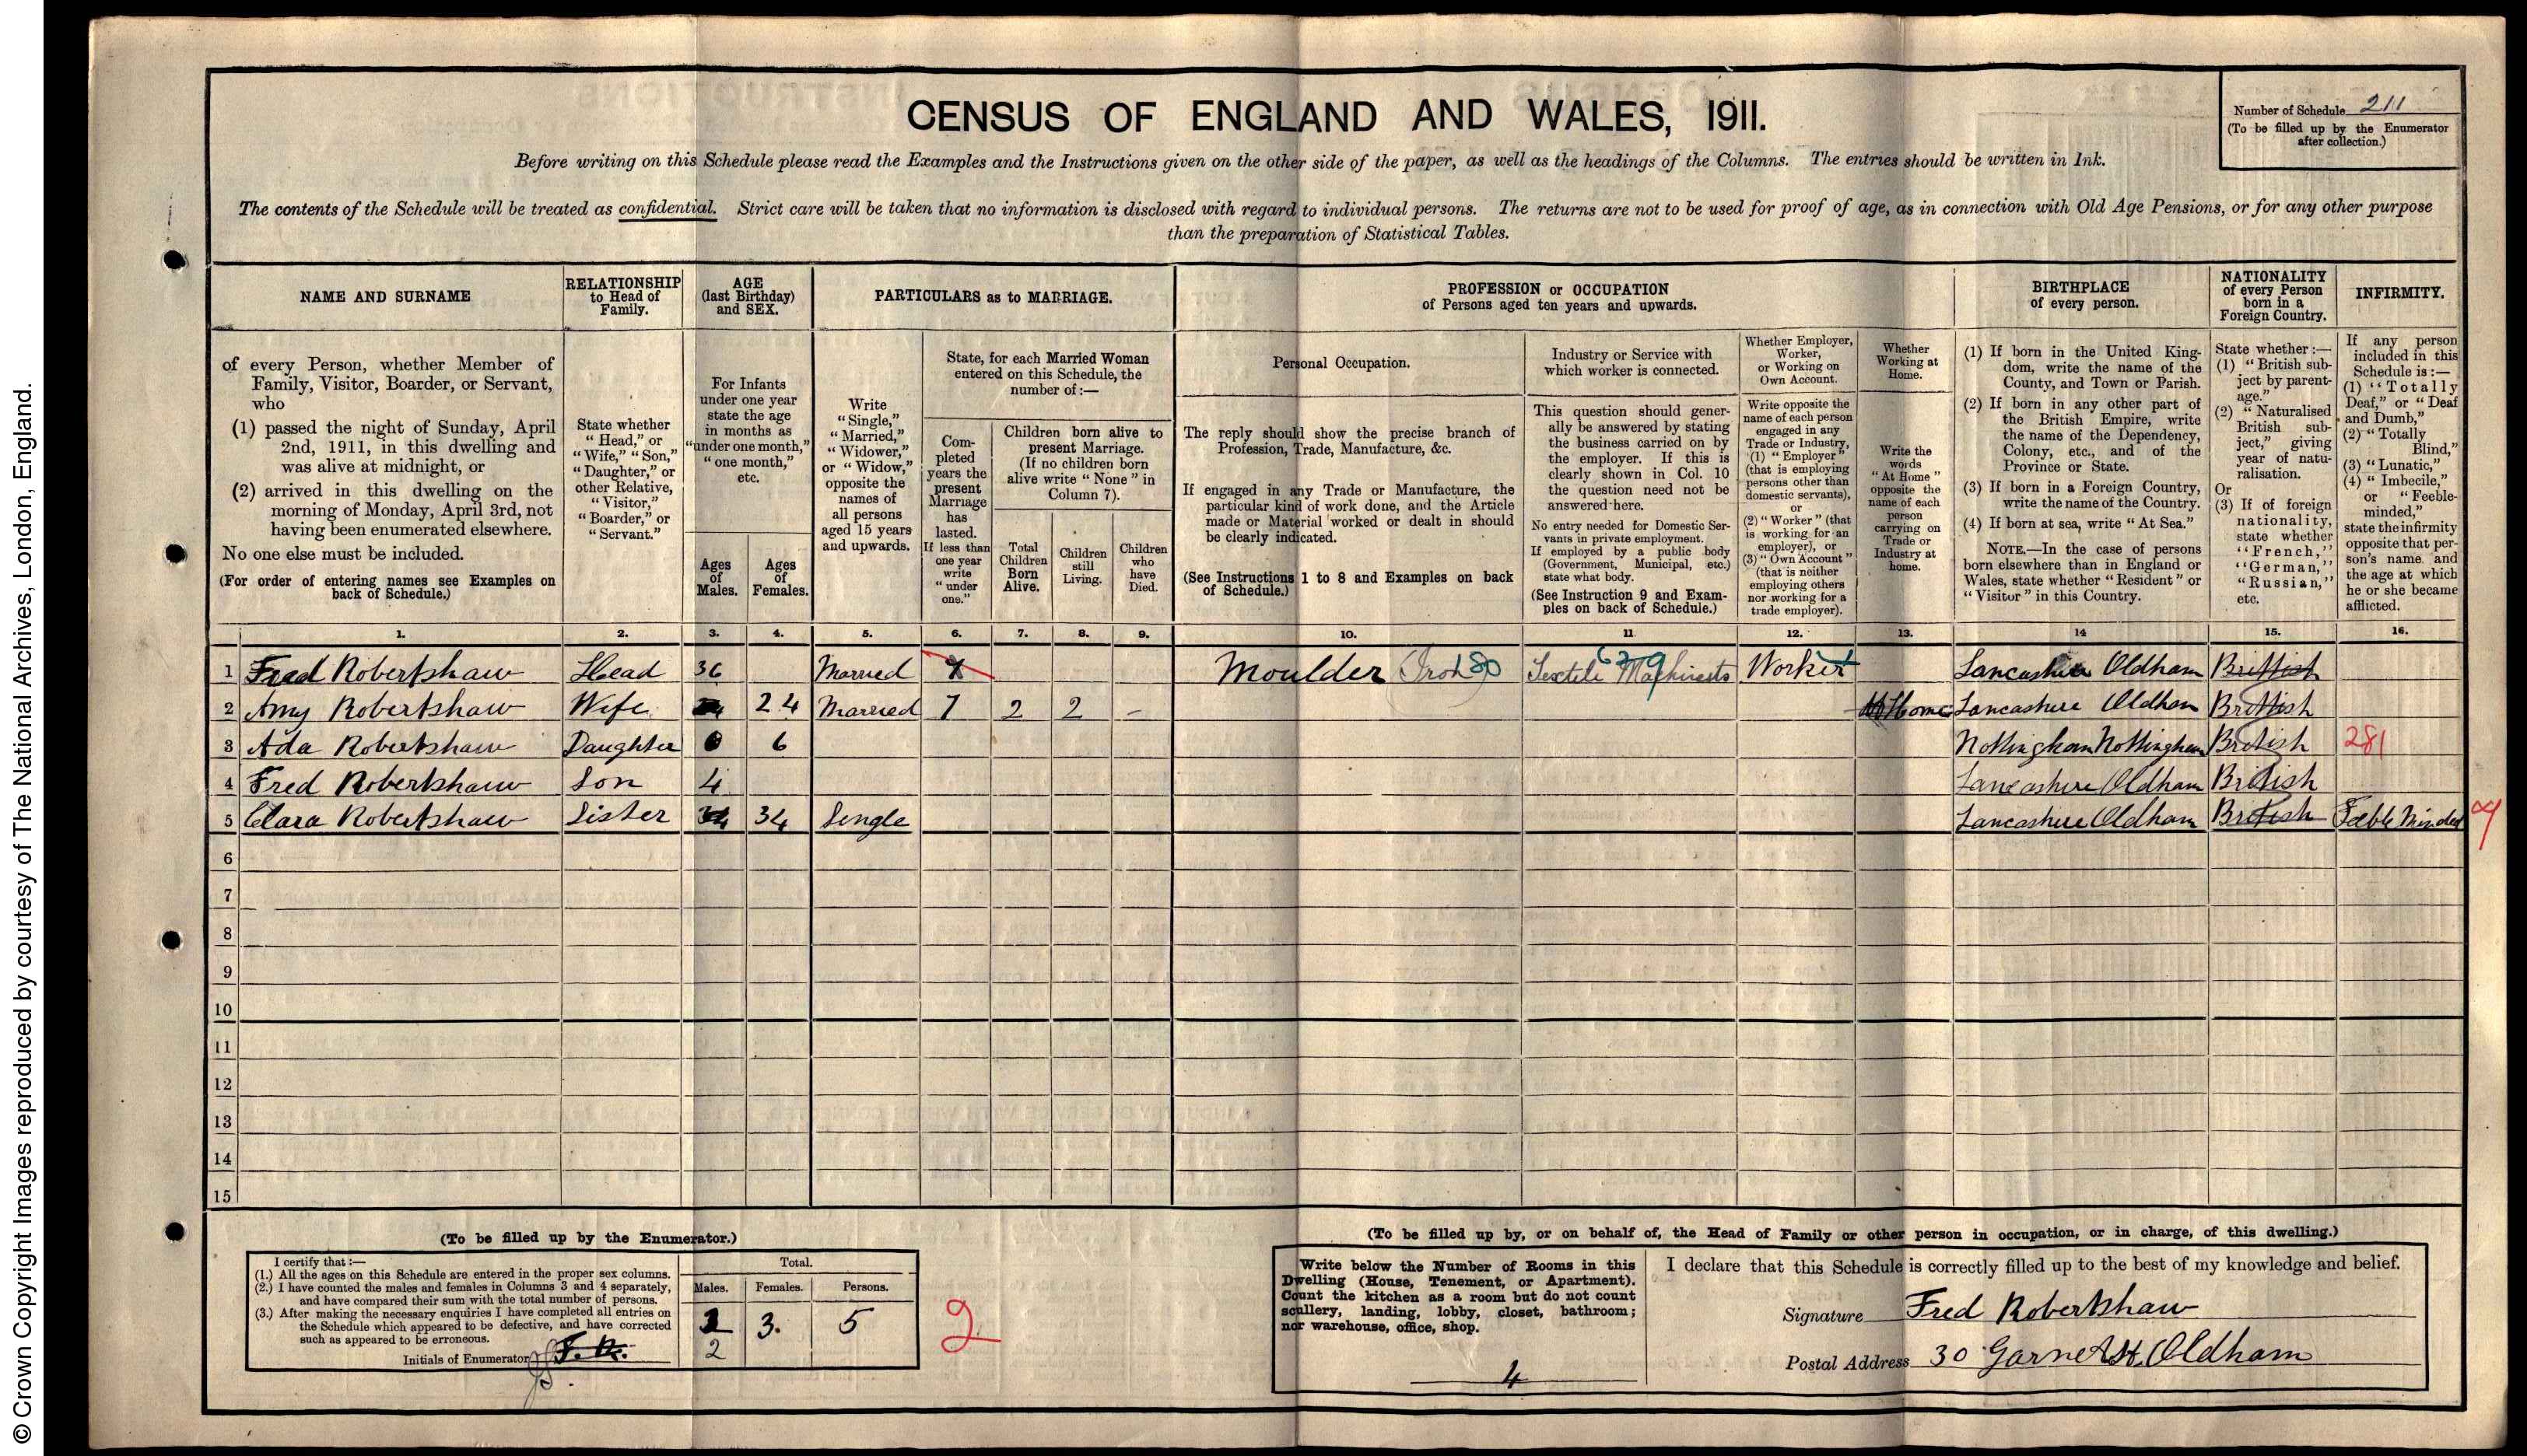 © Crown Copyright Images reproduced by courtesy of The National Archives, London, England.
CENSUS OF ENGLAND AND WALES, 1911.
Number of Schedule 211
(To be filled up by the Enumerator
after collection.)
Before writing on this Schedule please read the Examples and the Instructions given on the other side of the paper, as well as the headings of the Columns. The entries should be written in Ink.
The contents of the Schedule will be treated as confidential. Strict care will be taken that no information is disclosed with regard to individual persons. The returns are not to be used for proof of age, as in connection with Old Age Pensions, or for any other purpose
than the preparation of Statistical Tables.
NAME AND SURNAME
of every Person, whether Member of
Family, Visitor, Boarder, or Servant,
who
(1) passed the night of Sunday, April
2nd, 1911, in this dwelling and
was alive at midnight, or
(2) arrived in this dwelling on the
morning of Monday, April 3rd, not
having been enumerated elsewhere.
No one else must be included.
(For order of entering names see Examples on
back of Schedule.)
RELATIONSHIP
to Head of
Family.
State whether
"Head," or
"Wife," "Son,"
"Daughter," or
other Relative,
"Visitor,"
"Boarder," or
"Servant."
AGE
(last Birthday)
and SEX.
For Infants
under one year
state the age
in months as
"under one month,"
"one month,"
etc.
Ages
of
Males.
Ages
of
Females.
PARTICULARS as to MARRIAGE.
Write
"Single,"
"Married,"
"Widower,"
or "Widow,"
opposite the
names of
all persons
aged 15 years
and upwards.
State, for each Married Woman
entered on this Schedule, the
number of:—
Com-
pleted
years the
present
Marriage
has
lasted.
If less than
one year
write
"under
one."
Children born alive to
present Marriage.
(If no children born
alive write "None" in
Column 7).
Total
Children
Born
Alive.
Children
still
Living.
Children
who
have
Died.
PROFESSION or OCCUPATION
of Persons aged ten years and upwards.
Personal Occupation.
The reply should show the precise branch of
Profession, Trade, Manufacture, &c.
If engaged in any Trade or Manufacture, the
particular kind of work done, and the Article
made or Material worked or dealt in should
be clearly indicated.
(See Instructions 1 to 8 and Examples on back
of Schedule.)
Industry or Service with
which worker is connected.
This question should gener-
ally be answered by stating
the business carried on by
the employer. If this is
clearly shown in Col. 10
the question need not be
answered here.
No entry needed for Domestic Ser-
vants in private employment.
If employed by a public body
(Government, Municipal, etc.)
state what body.
(See Instruction 9 and Exam-
ples on back of Schedule.)
Whether Employer,
Worker,
or Working on
Own Account.
Write opposite the
name of each person
engaged in any
Trade or Industry,
(1) "Employer"
(that is employing
persons other than
domestic servants),
or
(2) "Worker" (that
is working for an
employer), or
(3) "Own Account"
(that is neither
employing others
nor working for a
trade employer).
Whether
Working at
Home.
Write the
words
"At Home"
opposite the
name of each
person
carrying on
Trade or
Industry at
home.
BIRTHPLACE
of every person.
(1) If born in the United King-
dom, write the name of the
County, and Town or Parish.
(2) If born in any other part of
the British Empire, write
the name of the Dependency,
Colony, etc., and of the
Province or State.
(3) If born in a Foreign Country,
write the name of the Country.
(4) If born at sea, write "At Sea."
NOTE.—In the case of persons
born elsewhere than in England or
Wales, state whether "Resident" or
"Visitor" in this Country.
NATIONALITY
of every Person
born in a
Foreign Country.
State whether:—
(1) "British sub-
ject by parent-
age."
(2) "Naturalised
British sub-
ject," giving
year of natu-
ralisation.
Or
(3) If of foreign
nationality,
state whether
"French,"
"German,"
"Russian,"
etc.
INFIRMITY.
If any person
included in this
Schedule is:—
(1) "Totally
Deaf," or "Deaf
and Dumb,"
(2) "Totally
Blind,"
(3) "Lunatic,"
(4) "Imbecile,"
or "Feeble-
minded,"
state the infirmity
opposite that per-
son's name and
the age at which
he or she became
afflicted.
1. 2. 3. 4. 5. 6. 7. 8. 9. 10. 11 12. 13. 14 15. 16.
1 Fred Robertshaw Head 36 Married Moulder Iron 80 Textile Machinists 679 Worker Lancashire Oldham British
2 Amy Robertshaw Wife 24 Married 7 2 2 – At Home Lancashire Oldham British
3 Ada Robertshaw Daughter 6 Nottingham Nottingham British 281
4 Fred Robertshaw Son 4 Lancashire Oldham British
5 Clara Robertshaw Sister 34 Single Lancashire Oldham British Feeble Minded
6
7
8
9
10
11
12
13
14
15
(To be filled up by the Enumerator.)
I certify that:—
(1.) All the ages on this Schedule are entered in the proper sex columns.
(2.) I have counted the males and females in Columns 3 and 4 separately,
and have compared their sum with the total number of persons.
(3.) After making the necessary enquiries I have completed all entries on
the Schedule which appeared to be defective, and have corrected
such as appeared to be erroneous.
Initials of Enumerator F. R.
Total.
Males. Females. Persons.
3. 5
2
2
(To be filled up by, or on behalf of, the Head of Family or other person in occupation, or in charge, of this dwelling.)
Write below the Number of Rooms in this
Dwelling (House, Tenement, or Apartment).
Count the kitchen as a room but do not count
scullery, landing, lobby, closet, bathroom;
nor warehouse, office, shop.
4
I declare that this Schedule is correctly filled up to the best of my knowledge and belief.
Signature Fred Robertshaw
Postal Address 30 Garnet St. Oldham